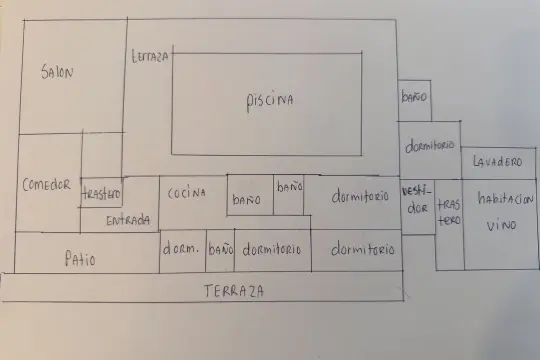 SALON
terraza
piscina
baño
dormitorio
LAVADERO
comedor
trastero
cocina
baño
baño
dormitorio
vesti-
dor
tras
tero
habitacion
vino
ENTRADA
patio
dorm.
baño
dormitorio
dormitorio
TERRAZA